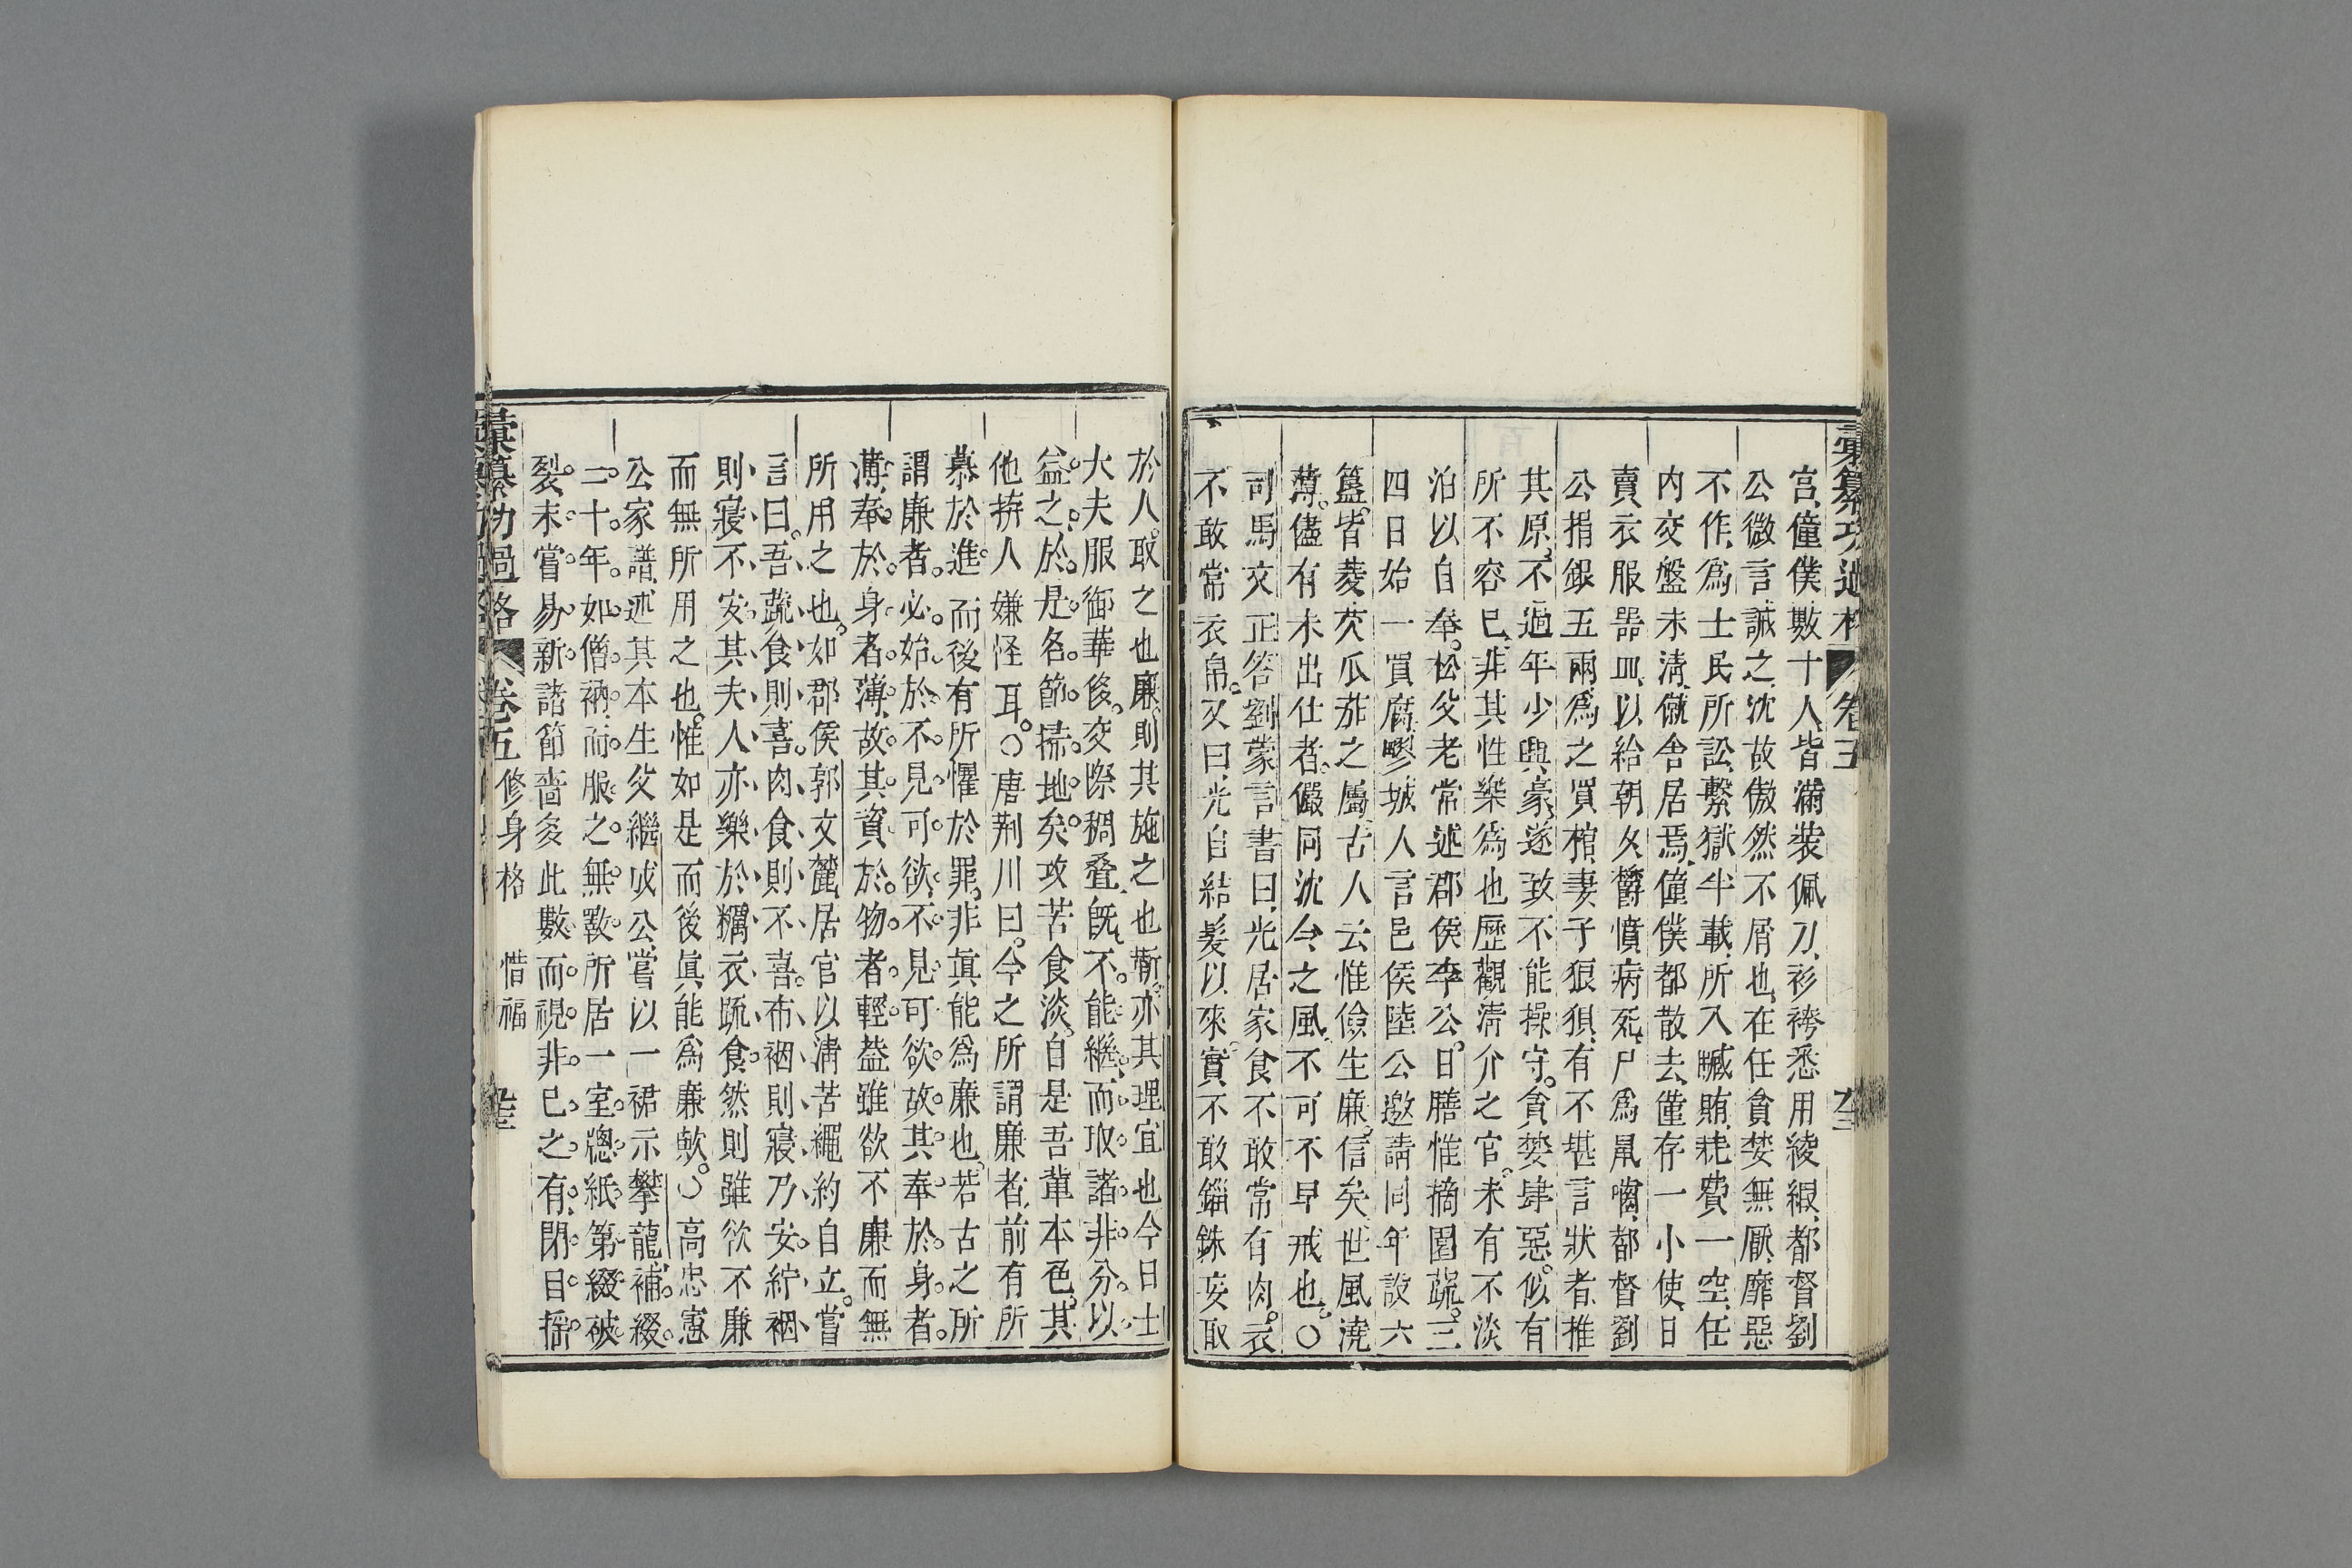 彙纂功過格 卷五
宫、僮僕數十人、皆滿裝佩刀、衫袴悉用綾緞、都督劉
公微言誡之、沈故傲然不屑也、在任貪婪無厭、靡惡
不作、爲士民所訟、繫獄半載、所入贓賄、耗費一空、任
内交盤未淸、僦舍居焉、僮僕都散去、僅存一小使、日
賣衣服器皿、以給朝夕、欝憤病死、尸爲鼠囓、都督劉
公捐銀五兩、爲之買棺、妻子狼狽、有不堪言狀者、推
其原、不過年少興豪、遂致不能操守。貪婪肆惡。似有
所不容已、非其性樂爲也、歷觀淸介之官。未有不淡
泊以自奉。松父老常述郡侯李公。日膳惟摘園蔬。三
四日始一買腐、鄝城人言邑侯陸公邀請同年、設六
簋、皆菱芡瓜茄之屬、古人云惟儉生廉。信矣、世風澆
薄。儘有未出仕者。儼同沈令之風、不可不早戒也。○
司馬文正答劉蒙言書曰、光居家食不敢常有肉。衣
不敢常衣帛。又曰、光自結髮以來。實不敢錙銖妄取
於人。取之也廉。則其施之也慚。亦其理宜也今日士
大夫服御華侈。交際稠叠、旣不能繼、而取諸非分。以
益之、於是名節掃地矣。攻苦食淡。自是吾輩本色。其
他拚人嫌怪耳。○唐荆川曰。今之所謂廉者、前有所
慕於進。而後有所懼於罪。非眞能爲廉也。若古之所
謂廉者。必始於不見可欲、不見可欲。故其奉於身者。
薄、奉於身者薄、故其資於物者輕。葢雖欲不廉而無
所用之也。如郡侯郭文麓、居官以淸苦繩約自立。嘗
言曰。吾蔬食則喜。肉食則不喜。布裀則寢乃安。紵裀
則寢不安。其夫人亦樂於糲衣疏食。然則雖欲不廉
而無所用之也。惟如是而後眞能爲廉歟。○高忠憲
公家譜、述其本生父繼成公、嘗以一裙示攀龍、補綴
二十年。如僧衲、而服之無斁、所居一室。牕紙第綴破
裂、未嘗易新、諸節嗇多此數、而視非已之有、閉目揺
彙纂功過格 卷五 修身格 惜福